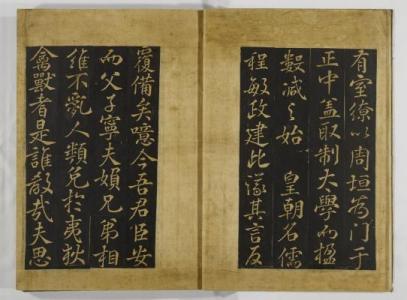 有室繚以周垣為门于
正中盖取制大學而楹
數減之始　皇朝名儒
程敏政建此議其言反
覆備矣噫今吾君臣安
而父子寧夫順兄弟相
維不亂人類免於夷狄
禽獸者是誰教哉夫思